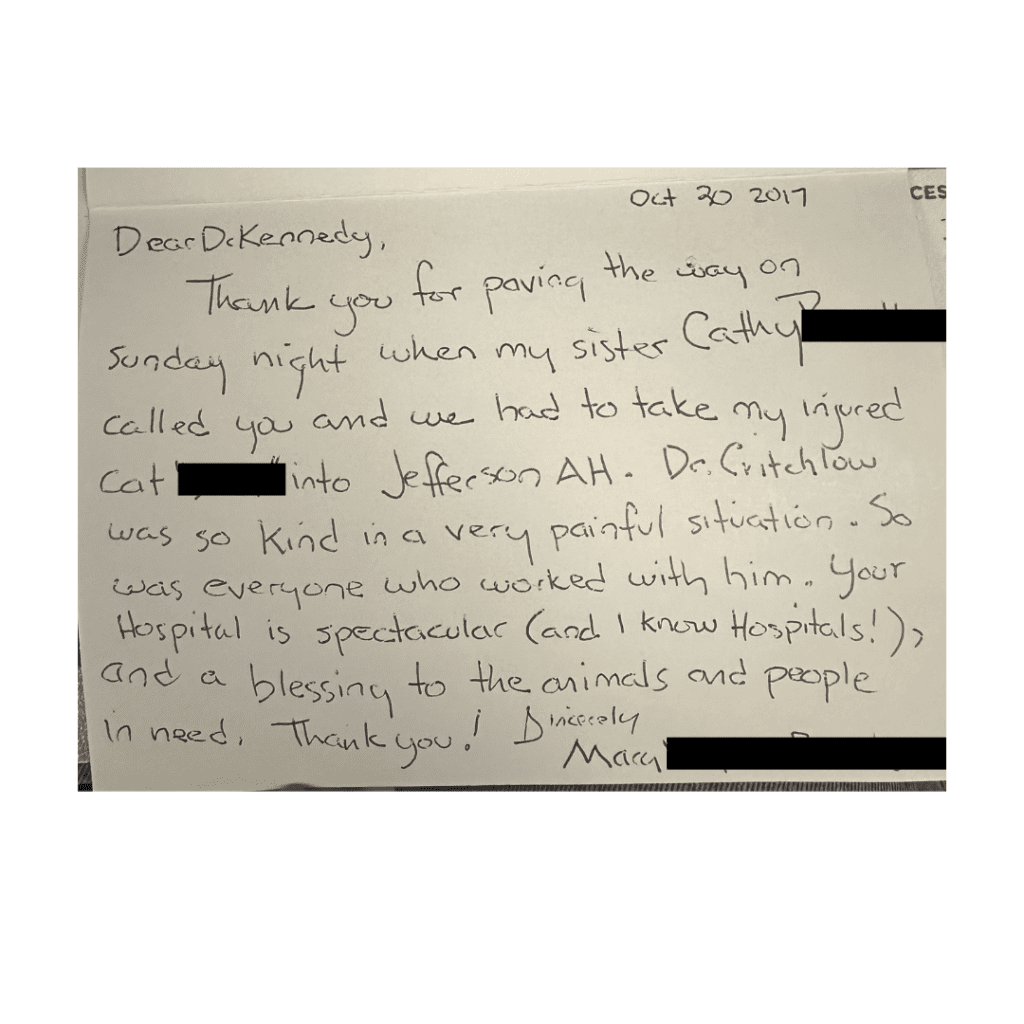 Oct 30 2017
CES
Dear Dr Kennedy,
Thank you for paving the way on
Sunday night when my sister Cathy
called you and we had to take my injured
cat into Jefferson AH. Dr. Critchlow
was so kind in a very painful situation. So
was everyone who worked with him. Your
Hospital is spectacular (and I know Hospitals!),
and a blessing to the animals and people
in need. Thank you! Sincerely
Mary